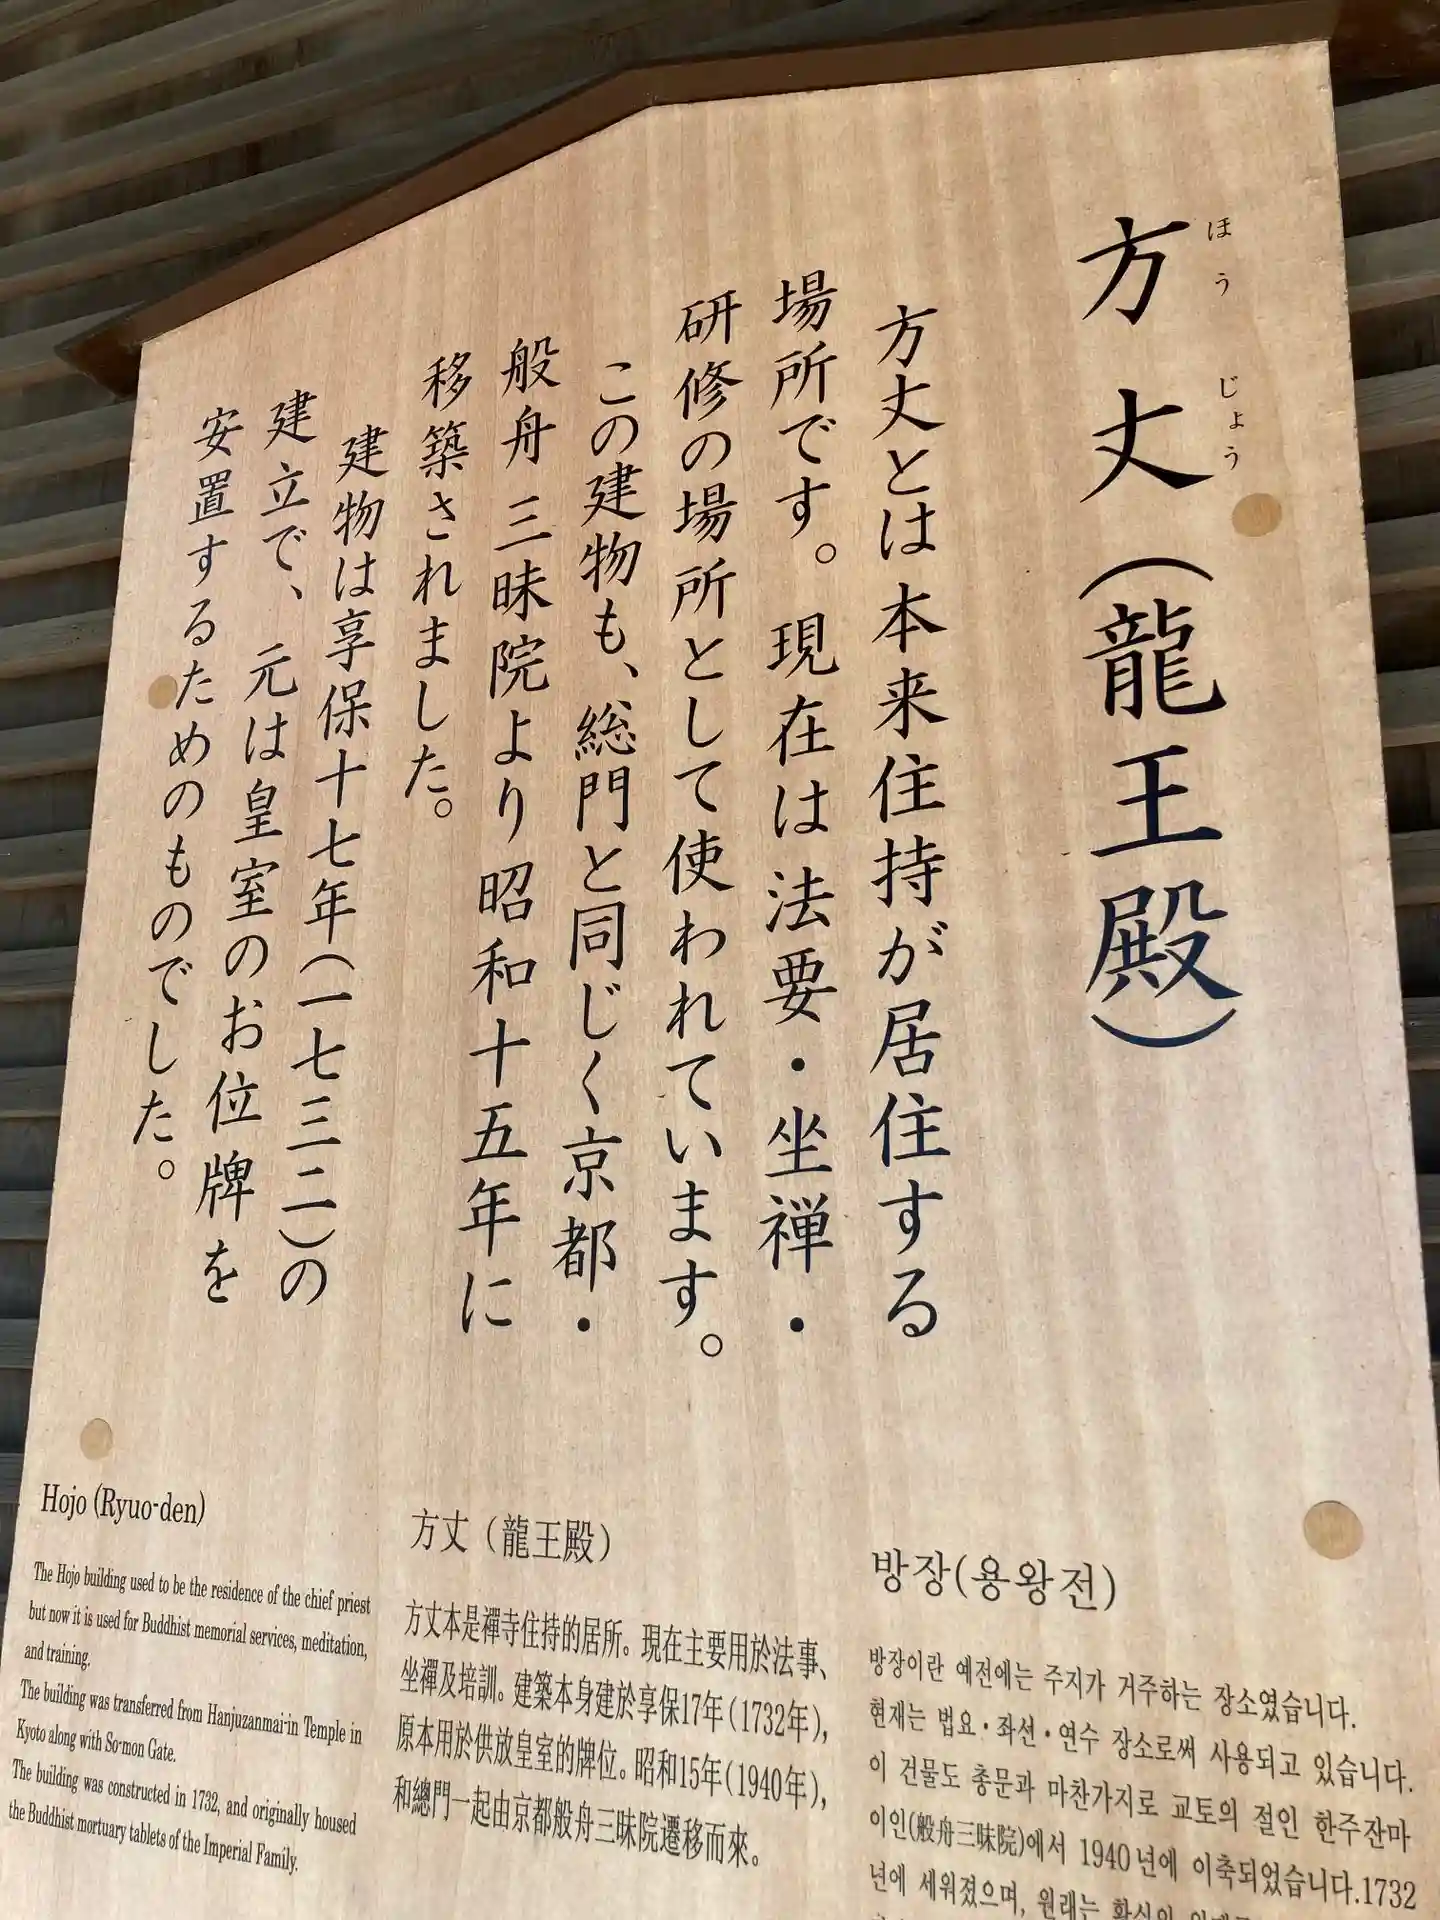 方丈(龍王殿)
ほうじょう
方丈とは本来住持が居住する
場所です。現在は法要・坐禅・
研修の場所として使われています。
この建物も、総門と同じく京都・
般舟三昧院より昭和十五年に
移築されました。
建物は享保十七年(一七三二)の
建立で、元は皇室のお位牌を
安置するためのものでした。
Hojo (Ryuo-den)
The Hojo building used to be the residence of the chief priest
but now it is used for Buddhist memorial services, meditation,
and training.
The building was transferred from Hanjuzanmai-in Temple in
Kyoto along with So-mon Gate.
The building was constructed in 1732, and originally housed
the Buddhist mortuary tablets of the Imperial Family.
方丈（龍王殿）
方丈本是禪寺住持的居所。現在主要用於法事、
坐禪及培訓。建築本身建於享保17年(1732年),
原本用於供放皇室的牌位。昭和15年(1940年),
和總門一起由京都般舟三昧院遷移而來。
방장(용왕전)
방장이란 예전에는 주지가 거주하는 장소였습니다.
현재는 법요・좌선・연수 장소로써 사용되고 있습니다.
이 건물도 총문과 마찬가지로 교토의 절인 한주잔마
이인(般舟三昧院)에서 1940년에 이축되었습니다.1732
년에 세워졌으며, 원래는 황실의